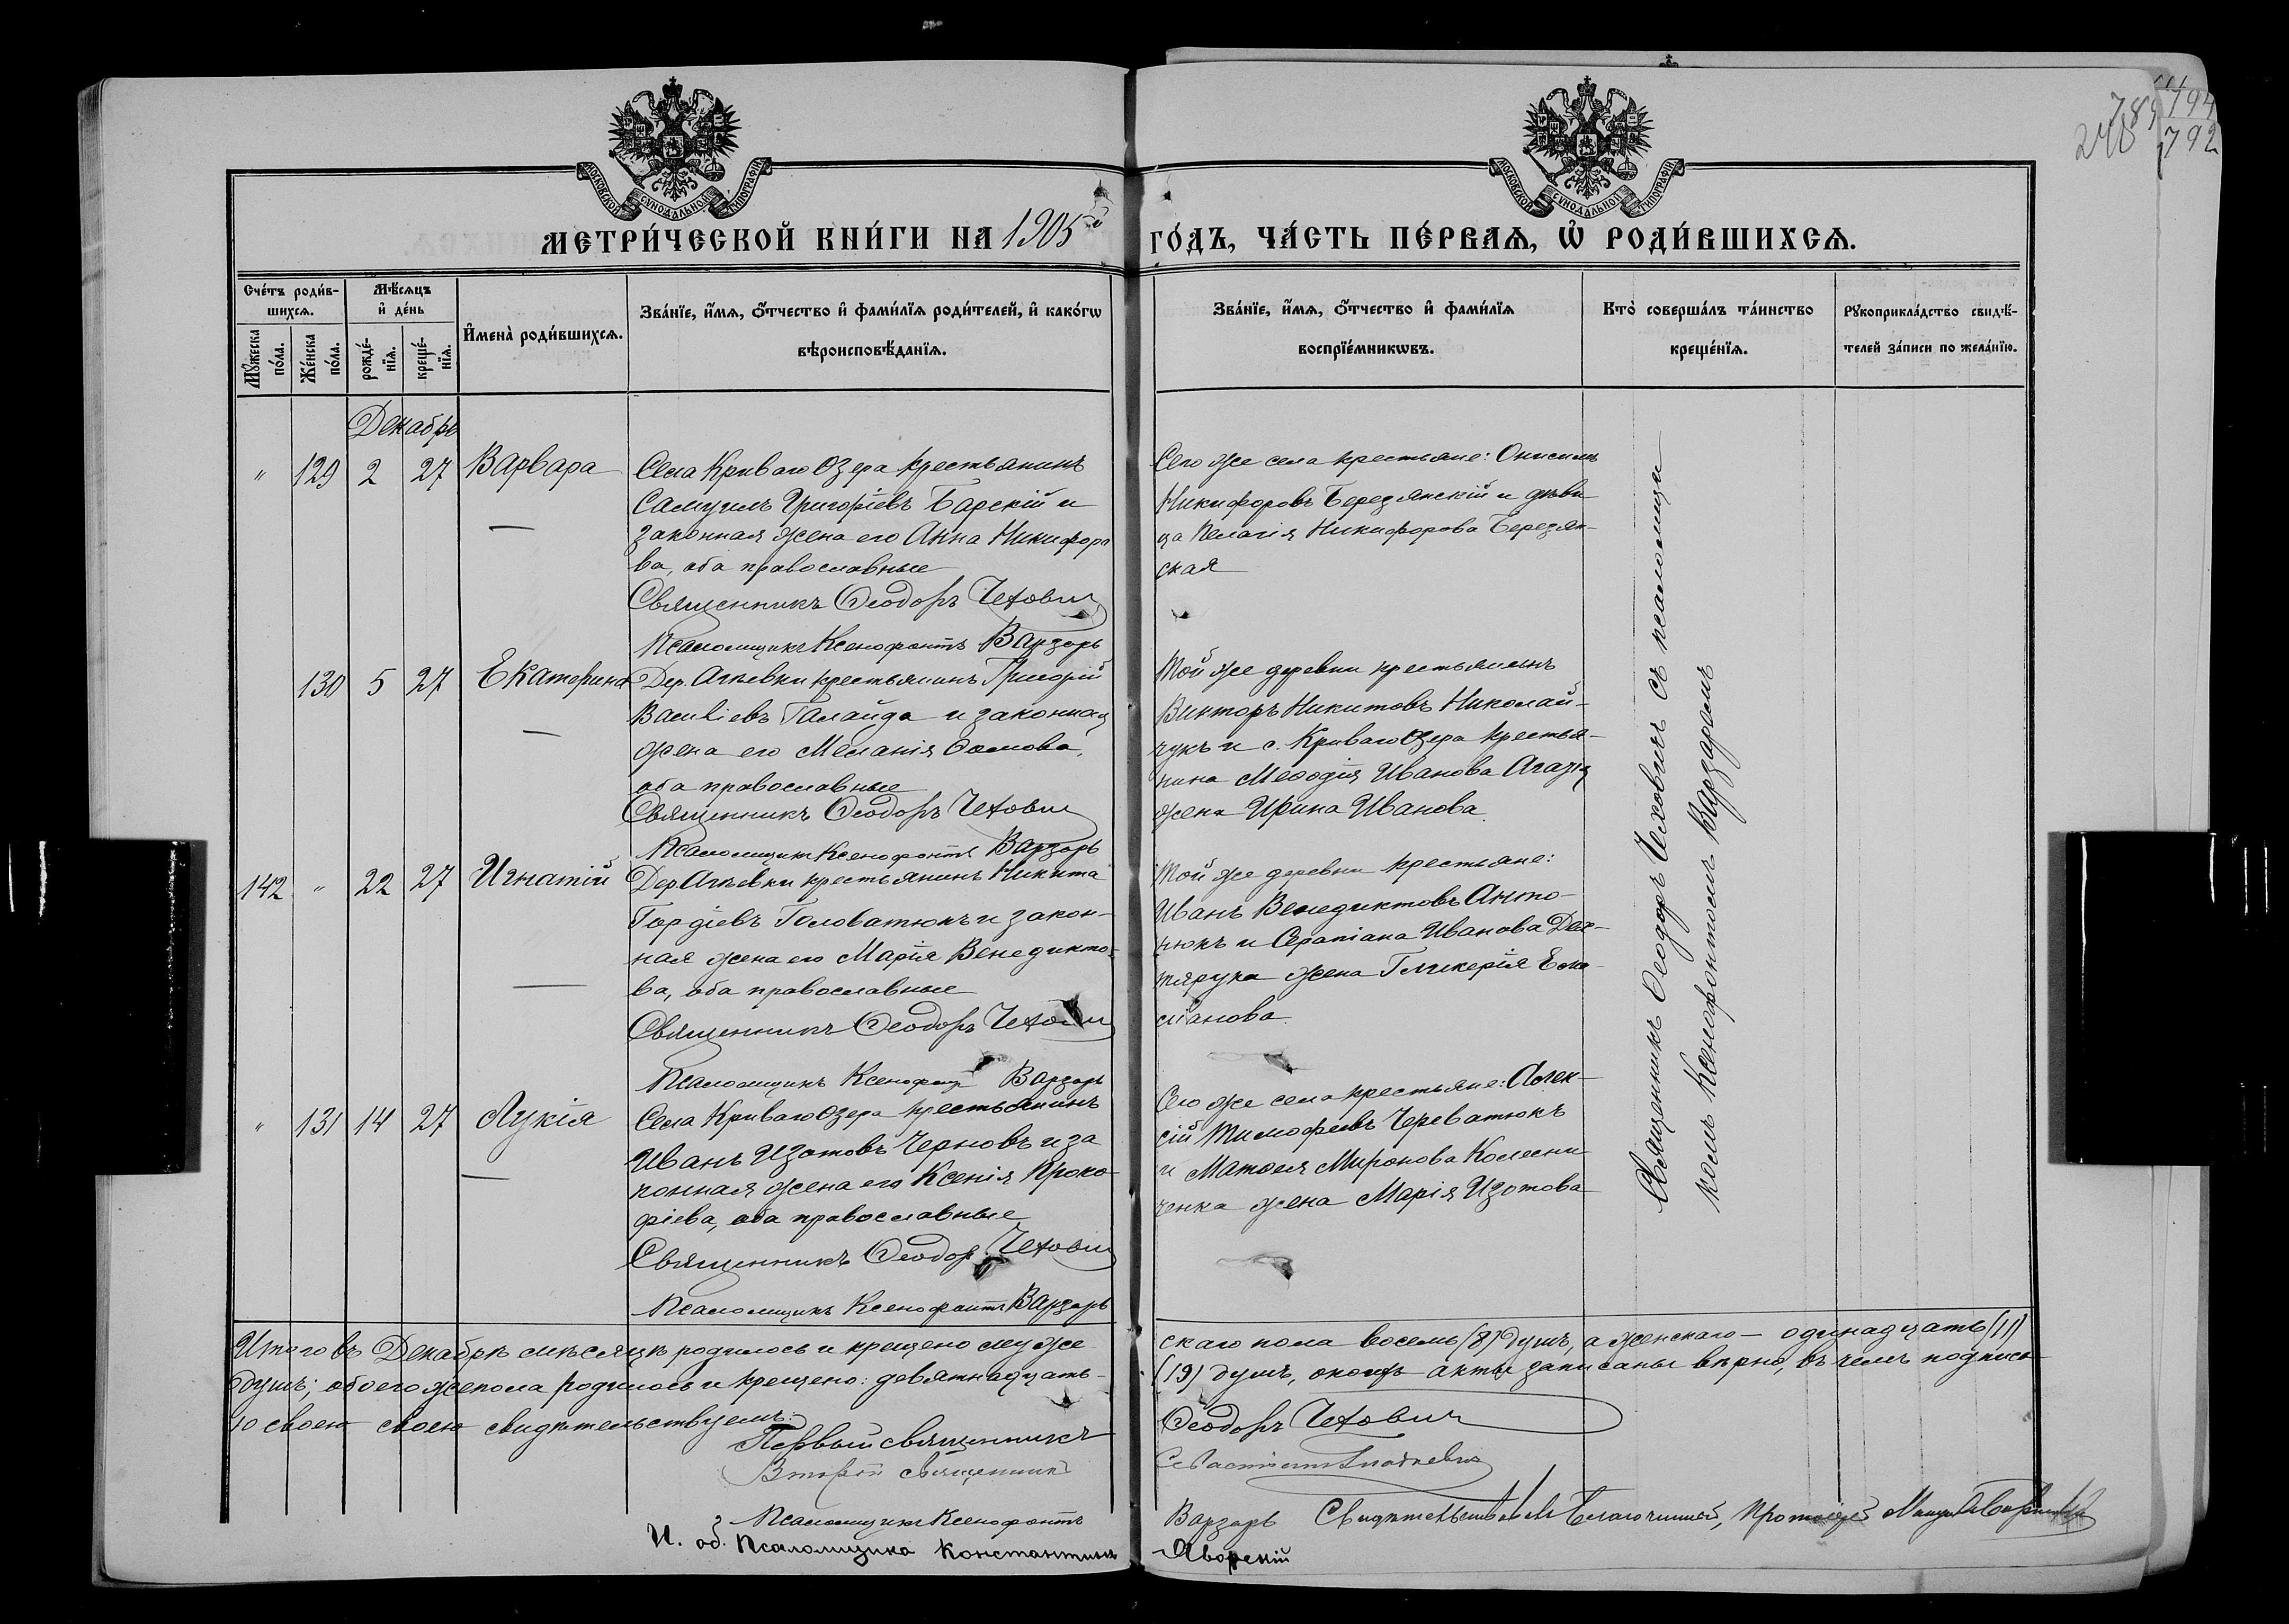 794
789
248 792
МОСКОВСКОЙ СѴНОДАЛЬНОЙ ТИПОГРАФІИ
МОСКОВСКОЙ СѴНОДАЛЬНОЙ ТИПОГРАФІИ
МЕТРИ́ЧЕСКОЙ КНИ́ГИ НА 1905ый ГО́ДЪ, ЧА́СТЬ ПЕ́РВАѦ, Ѡ҆ РОДИ́ВШИХСѦ.
Сче́тъ роди́в-
шихсѧ.
Мꙋ́жеска по́ла.
Же́нска по́ла.
Мѣ́сѧцъ
и҆ де́нь
рожде́-
нїѧ.
креще́-
нїѧ.
И҆мена̀ роди́вшихсѧ.
Зва́нїе, и҆́мѧ, ѻ҆́тчество и҆ фами́лїѧ роди́телей, и҆ како́гѡ
вѣроисповѣ́данїѧ.
Зва́нїе, и҆́мѧ, ѻ҆́тчество и҆ фами́лїѧ
воспрїе́мникѡвъ.
Кто̀ соверша́лъ та́инство
креще́нїѧ.
Рꙋкоприкла́дство свидѣ́-
телей за́писи по жела́нїю.
Декабрь
" 129 2 27 Варвара
Села Криваго Озера крестьянинъ
Самуилъ Григоріевъ Барскій и
законная жена его Анна Никифоро
ва, оба православные
Священникъ Ѳеодоръ Чехович
Псаломщикъ Ксенофонтъ Варзарь
Сего же села крестьяне: Онисимъ
Никифоровъ Березянскій и дѣви-
ца Пелагія Никифорова Березян-
ская
130 5 27 Екатерина
Дер. Агѣевки крестьянинъ Григорій
Василіевъ Галайда и законная
жена его Меланія Ѳомова,
оба православные
Священникъ Ѳеодоръ Чехович
Псаломщикъ Ксенофонтъ Варзарь
Той же деревни крестьянинъ
Викторъ Никитовъ Николай-
чукъ и с. Криваго Озера крестья-
нина Меѳодія Иванова
жена Ирина Иванова.
142 " 22 27 Игнатій
Дер. Агѣевки крестьянинъ Никита
Гордіевъ Головатюкъ и закон-
ная жена его Марія Венедикто-
ва, оба православные
Священникъ Ѳеодоръ Чехович
Псаломщикъ Ксенофонтъ Варзарь
Той же деревни крестьяне:
Иванъ Венедиктовъ Анто-
нюкъ и Серапіона Иванова Дех-
тярука жена Гликерія Еми-
ліанова.
" 131 14 27 Лукія
Села Криваго Озера крестьянинъ
Иванъ Изотовъ Черновъ и за
конная жена его Ксенія Проко-
фіева, оба православные
Священникъ Ѳеодоръ Чехович
Псаломщикъ Ксенофонтъ Варзарь
Сего же села крестьяне: Алек-
сій Тимофеевъ Череватюкъ
и Матѳея Миронова Колесни
ченка жена Марія Изотова
Священникъ Ѳеодоръ Чеховичъ съ псаломщи-
комъ Ксенофонтомъ Варзаремъ
Итого въ Декабрѣ мѣсяцѣ родилось и крещено муже
скаго пола восемь (8) душъ, а женскаго — одинадцать (11)
душъ; обоего же пола родилось и крещено: девятнадцать
(19) душъ, акты записаны вѣрно, въ чемъ подписъ-
ю своею своею свидѣтельствуемъ:
Первый священникъ Ѳеодоръ Чехович
Второй священникъ
Псаломщикъ Ксенофонтъ Варзарь
Благочинный, Протоіерей
И. об. Псаломщика Константинъ Яворскій